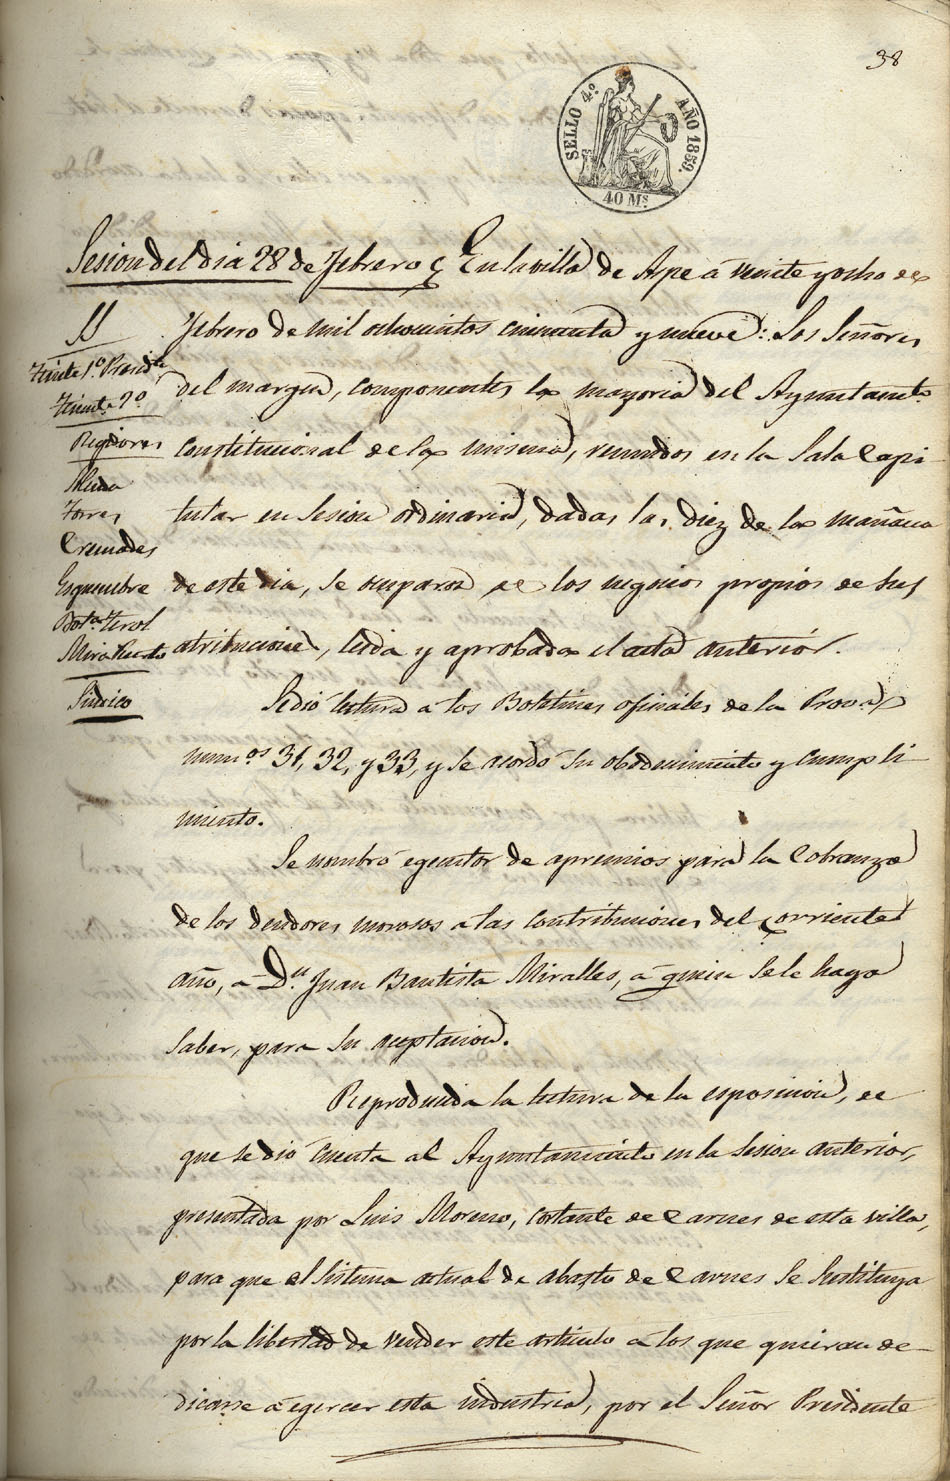 38
SELLO 4º AÑO 1859.
40 Ms
Sesion del dia 28 de Febrero
En la villa de Aspe á veinte y ocho de
SS
Febrero de mil ochocientos cincuenta y nueve: Los Señores
Tenite 1º Presidte
del margen, componentes la mayoria del Ayuntamto
Tenite 2º
Regidores
constitucional de la misma, reunidos en la Sala Capi-
Torres
tular en sesion ordinaria, dadas las diez de la mañana
Cremades
de este dia, se ocuparon de los negocios propios de sus
Bota Terol
Mira
atribuciones, leida y aprobada el acta anterior.
Sindico
Se dió lectura á los Boletines oficiales de la Prova
numos 31, 32, y 33, y se acordó su obedecimiento y cumpli-
miento.
Se nombró egecutor de apremios para la Cobranza
de los deudores morosos á las contribuciones del corriente
año, á Dn Juan Bautista Miralles, á quien se le haga
saber, para su aceptacion.
Reproducida la lectura de la esposicion, de
que se dió cuenta al Ayuntamiento en la sesion anterior,
presentada por Luis Moreno, cortante de Carnes de esta villa,
para que el sistema actual de abasto de Carnes se sustituya
por la libertad de vender este artículo á los que quieran de-
dicarse á egercer esta industria, por el Señor Presidente